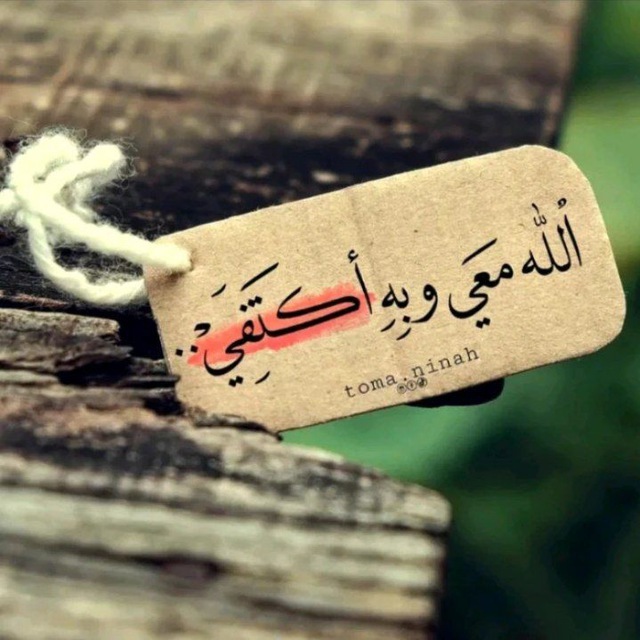 اُللّٰه مَعَي وبِهِ أكتَفِي :
toma.ninah